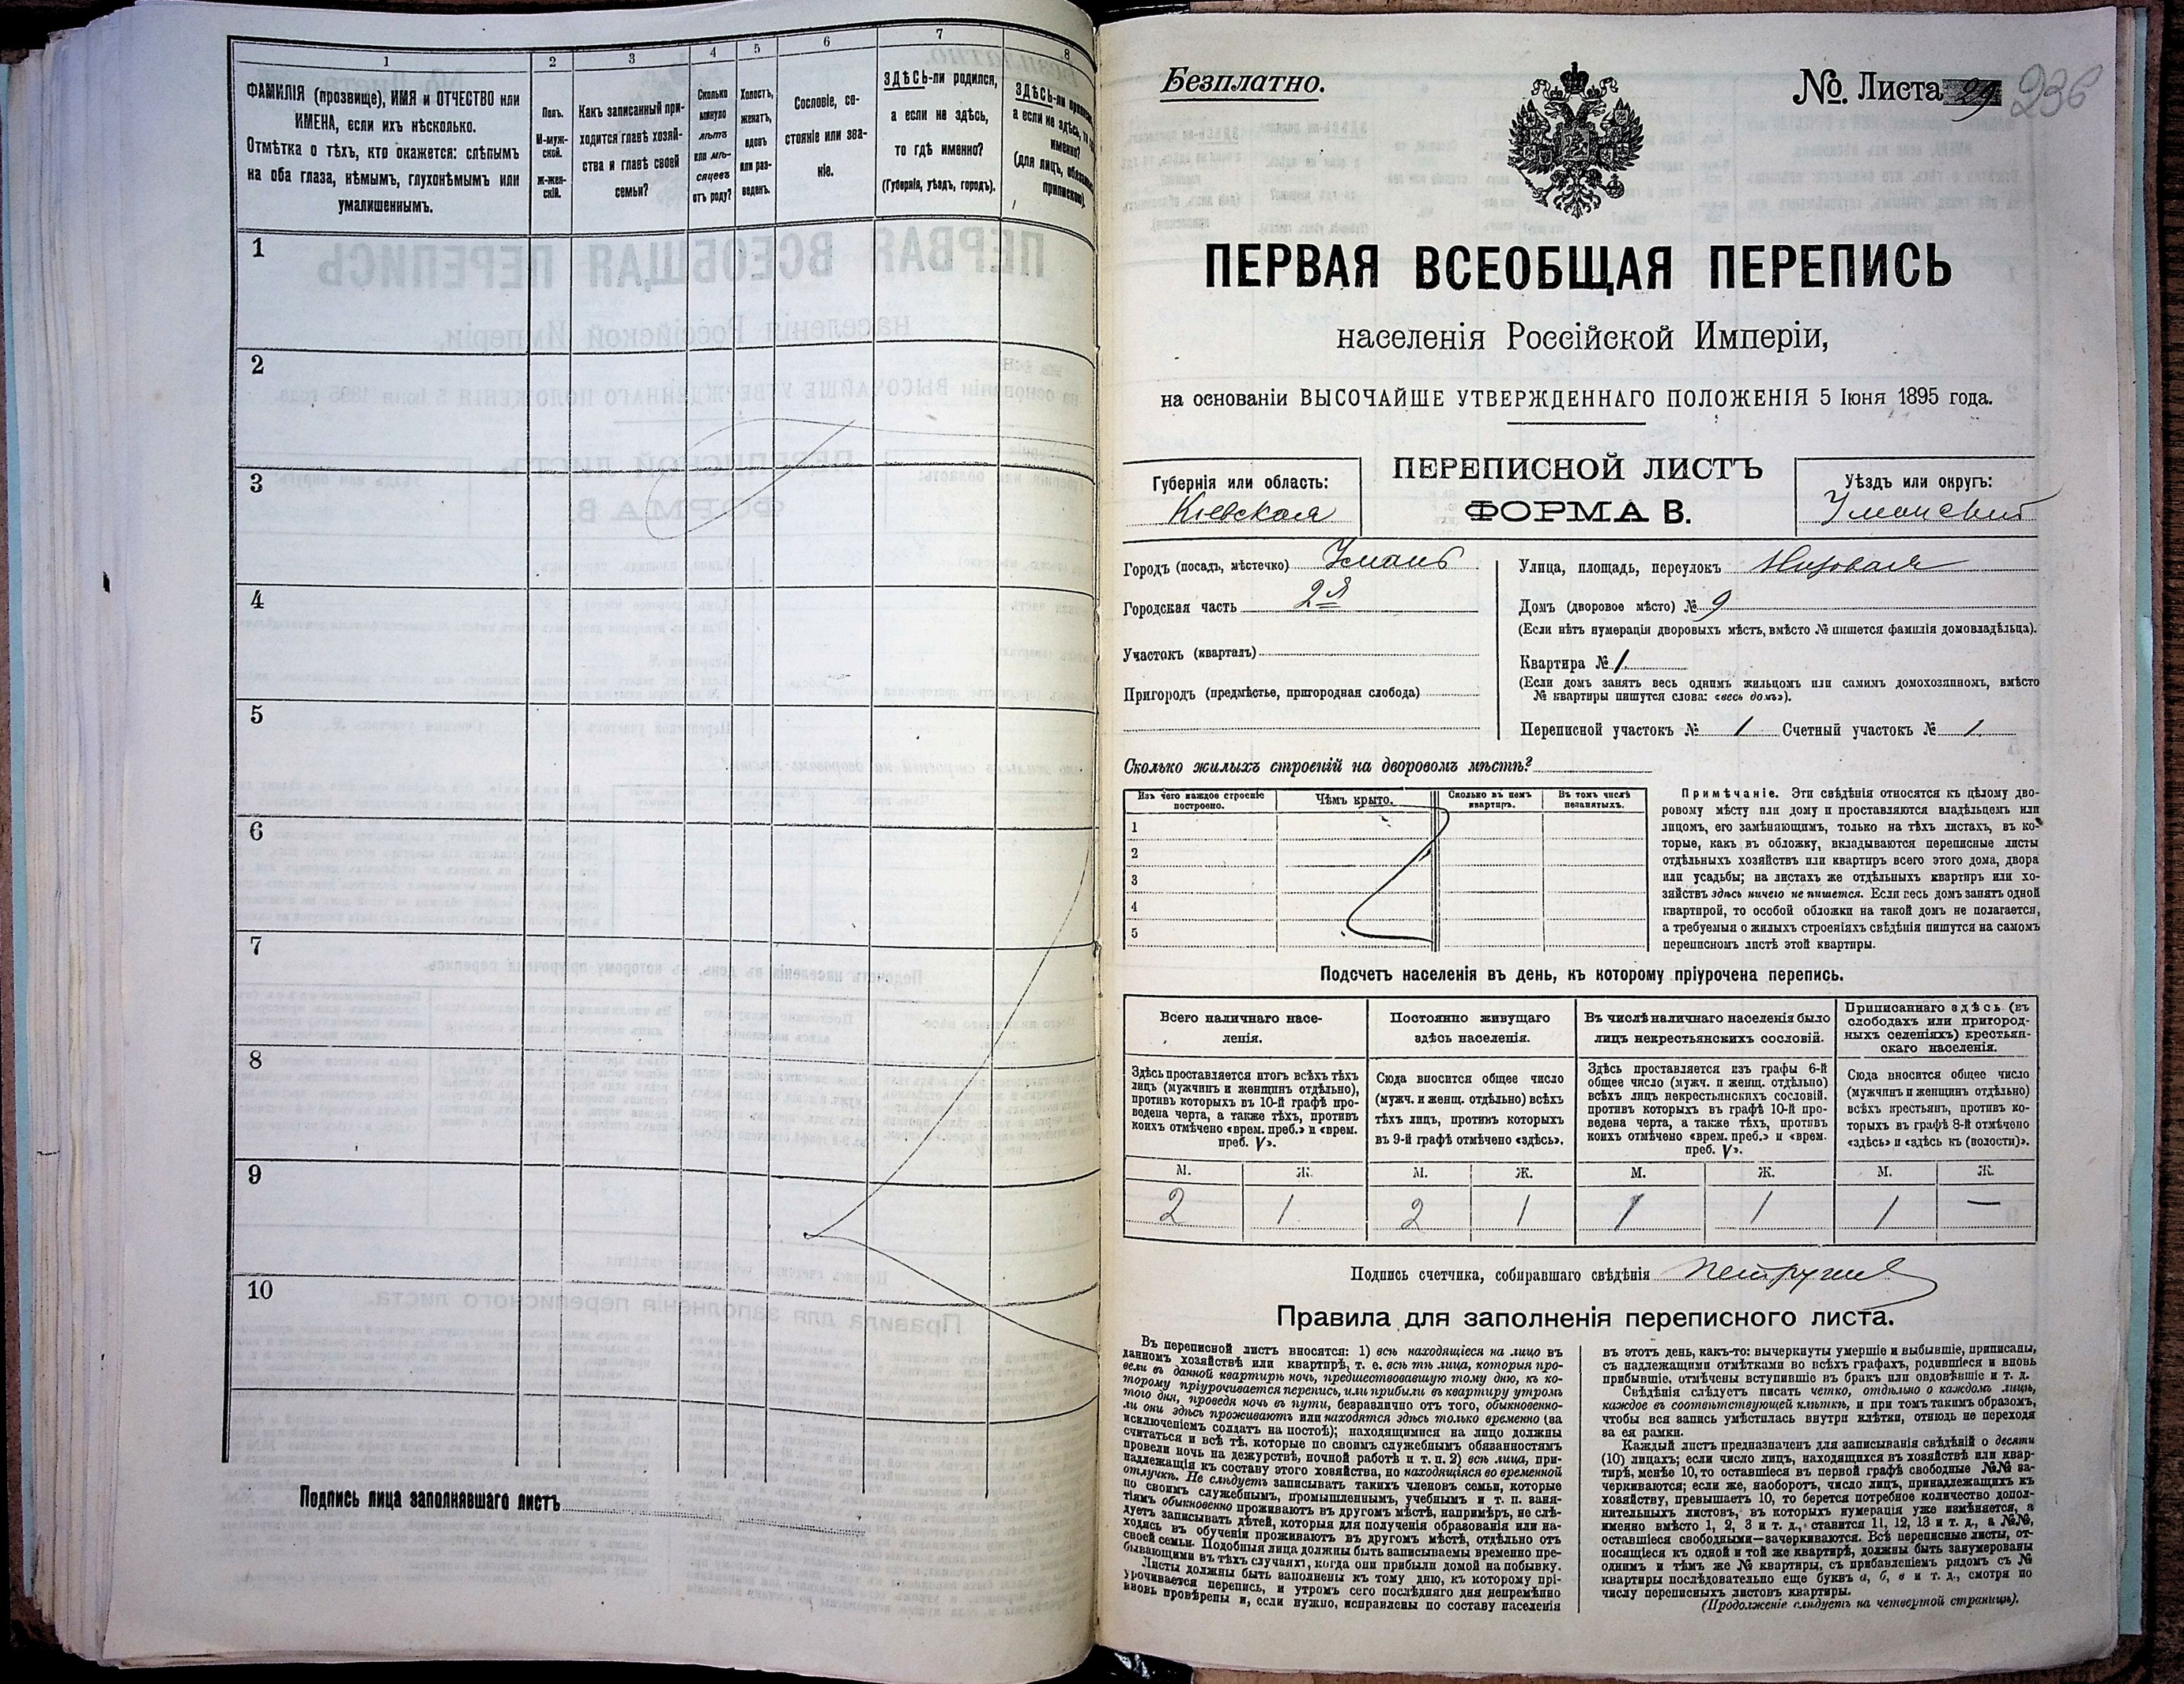 1
ФАМИЛІЯ (прозвище), ИМЯ и ОТЧЕСТВО или
ИМЕНА, если ихъ нѣсколько.
Отмѣтка о тѣхъ, кто окажется: слѣпымъ
на оба глаза, нѣмымъ, глухонѣмымъ или
умалишеннымъ.
2
Полъ.
М-муж-
ской.
ж-жен-
скій.
3
Какъ записанный при-
ходится главѣ хозяй-
ства и главѣ своей
семьи?
4
Сколько
минуло
лѣтъ
или мѣ-
сяцевъ
отъ роду?
5
Холостъ,
женатъ,
вдовъ
или раз-
веденъ.
6
Сословіе, со-
стояніе или зва-
ніе.
7
ЗДѢСЬ-ли родился,
а если не здѣсь,
то гдѣ именно?
(Губернія, уѣздъ, городъ).
8
ЗДѢСЬ-ли
а если не здѣсь,
именно?
(для лицъ,
припискою).
1
2
3
4
5
6
7
8
9
10
Подпись лица заполнявшаго листъ
Безплатно.
№ Листа 29 236
ПЕРВАЯ ВСЕОБЩАЯ ПЕРЕПИСЬ
населенія Россійской Имперіи,
на основаніи ВЫСОЧАЙШЕ УТВЕРЖДЕННАГО ПОЛОЖЕНІЯ 5 Іюня 1895 года.
Губернія или область:
Кіевская
ПЕРЕПИСНОЙ ЛИСТЪ
ФОРМА В.
Уѣздъ или округъ:
Уманскій
Городъ (посадъ, мѣстечко) Умань
Городская часть 2я
Участокъ (кварталъ)
Пригородъ (предмѣстье, пригородная слобода)
Улица, площадь, переулокъ Низовая
Домъ (дворовое мѣсто) № 9
(Если нѣтъ нумераціи дворовыхъ мѣстъ, вмѣсто № пишется фамилія домовладѣльца).
Квартира № 1.
(Если домъ занятъ весь однимъ жильцомъ или самимъ домохозяиномъ, вмѣсто
№ квартиры пишутся слова: «весь домъ»).
Переписной участокъ № 1 Счетный участокъ № 1.
Сколько жилыхъ строеній на дворовомъ мѣстѣ?
Изъ чего каждое строеніе
построено.
Чѣмъ крыто.
Сколько въ немъ
квартиръ.
Въ томъ числѣ
незанятыхъ.
1
2
3
4
5
Примѣчаніе. Эти свѣдѣнія относятся къ цѣлому дво-
ровому мѣсту или дому и проставляются владѣльцемъ или
лицомъ, его замѣняющимъ, только на тѣхъ листахъ, въ ко-
торые, какъ въ обложку, вкладываются переписные листы
отдѣльныхъ хозяйствъ или квартиръ всего этого дома, двора
или усадьбы; на листахъ же отдѣльныхъ квартиръ или хо-
зяйствъ здѣсь ничего не пишется. Если весь домъ занятъ одной
квартирой, то особой обложки на такой домъ не полагается,
а требуемыя о жилыхъ строеніяхъ свѣдѣнія пишутся на самомъ
переписномъ листѣ этой квартиры.
Подсчетъ населенія въ день, къ которому пріурочена перепись.
Всего наличнаго насе-
ленія.
Здѣсь проставляется итогъ всѣхъ тѣхъ
лицъ (мужчинъ и женщинъ отдѣльно),
противъ которыхъ въ 10-й графѣ про-
ведена черта, а также тѣхъ, противъ
коихъ отмѣчено «врем. преб.» и «врем.
преб. V».
Постоянно живущаго
здѣсь населенія.
Сюда вносится общее число
(мужч. и женщ. отдѣльно) всѣхъ
тѣхъ лицъ, противъ которыхъ
въ 9-й графѣ отмѣчено «здѣсь».
Въ числѣ наличнаго населенія было
лицъ некрестьянскихъ сословій.
Здѣсь проставляется изъ графы 6-й
общее число (мужч. и женщ. отдѣльно)
всѣхъ лицъ некрестьянскихъ сословій.
противъ которыхъ въ графѣ 10-й про-
ведена черта, а также тѣхъ, противъ
коихъ отмѣчено «врем. преб.» и «врем.
преб. V».
Приписаннаго здѣсь (въ
слободахъ или пригород-
ныхъ селеніяхъ) крестьян-
скаго населенія.
Сюда вносится общее число
(мужчинъ и женщинъ отдѣльно)
всѣхъ крестьянъ, противъ ко-
торыхъ въ графѣ 8-й отмѣчено
«здѣсь» и «здѣсь къ (волости)».
М. Ж. М. Ж. М. Ж. М. Ж.
2 1 2 1 1 1 1 —
Подпись счетчика, собиравшаго свѣдѣнія
Правила для заполненія переписного листа.
Въ переписной листъ вносятся: 1) всѣ находящіеся на лицо въ
данномъ хозяйствѣ или квартирѣ, т. е. всѣ тѣ лица, которыя про-
вели въ данной квартирѣ ночь, предшествовавшую тому дню, къ ко-
торому пріурочивается перепись, или прибыли въ квартиру утромъ
того дня, проведя ночь въ пути, безразлично отъ того, обыкновенно-
ли они здѣсь проживаютъ или находятся здѣсь только временно (за
исключеніемъ солдатъ на постоѣ); находящимися на лицо должны
считаться и всѣ тѣ, которые по своимъ служебнымъ обязанностямъ
провели ночь на дежурствѣ, ночной работѣ и т. п. 2) всѣ лица, при-
надлежащія къ составу этого хозяйства, но находящіяся во временной
отлучкѣ. Не слѣдуетъ записывать такихъ членовъ семьи, которые
по своимъ служебнымъ, промышленнымъ, учебнымъ и т. п. заня-
тіямъ обыкновенно проживаютъ въ другомъ мѣстѣ, напримѣръ, не слѣ-
дуетъ записывать дѣтей, которыя для полученія образованія или на-
ходясь въ обученіи проживаютъ въ другомъ мѣстѣ, отдѣльно отъ
своей семьи. Подобныя лица должны быть записываемы временно пре-
бывающими въ тѣхъ случаяхъ, когда они прибыли домой на побывку.
Листы должны быть заполнены къ тому дню, къ которому прі-
урочивается перепись, и утромъ сего послѣдняго дня непремѣнно
вновь провѣрены и, если нужно, исправлены по составу населенія
въ этотъ день, какъ-то: вычеркнуты умершіе и выбывшіе, приписаны,
съ надлежащими отмѣтками во всѣхъ графахъ, родившіеся и вновь
прибывшіе, отмѣчены вступившіе въ бракъ или овдовѣвшіе и т. д.
Свѣдѣнія слѣдуетъ писать четко, отдѣльно о каждомъ лицѣ,
каждое въ соотвѣтствующей клѣткѣ, и при томъ такимъ образомъ,
чтобы вся запись умѣстилась внутри клѣтки, отнюдь не переходя
за ея рамки.
Каждый листъ предназначенъ для записыванія свѣдѣній о десяти
(10) лицахъ; если число лицъ, находящихся въ хозяйствѣ или квар-
тирѣ, менѣе 10, то оставшіеся въ первой графѣ свободные №№ за-
черкиваются; если же, наоборотъ, число лицъ, принадлежащихъ къ
хозяйству, превышаетъ 10, то берется потребное количество допол-
нительныхъ листовъ, въ которыхъ нумерація уже измѣняется, а
именно вмѣсто 1, 2, 3 и т. д., ставится 11, 12, 13 и т. д., а №№,
оставшіеся свободными—зачеркиваются. Всѣ переписные листы, от-
носящіеся къ одной и той же квартирѣ, должны быть занумерованы
однимъ и тѣмъ же № квартиры, съ прибавленіемъ рядомъ съ №
квартиры послѣдовательно еще буквъ а, б, в и т. д., смотря по
числу переписныхъ листовъ квартиры.
(Продолженіе слѣдуетъ на четвертой страницѣ).